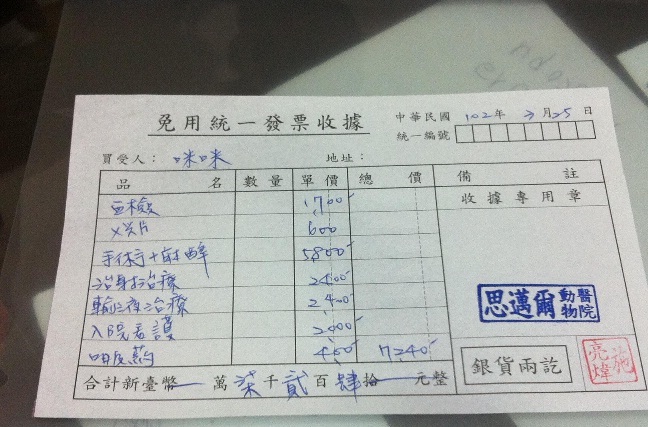 免用統一發票收據
中華民國 102年 3月25日
統一編號
買受人： 咪咪 地址：
品名 數量 單價 總價 備註
血檢 1700 收據專用章
X光片 600
手術+麻醉 5800
治療 2400
輸液治療 2400
入院看護 2000
口服藥 460 7240
思邁爾動物醫院
銀貨兩訖
施亮煒
合計新臺幣 萬柒千貳百肆拾 元整